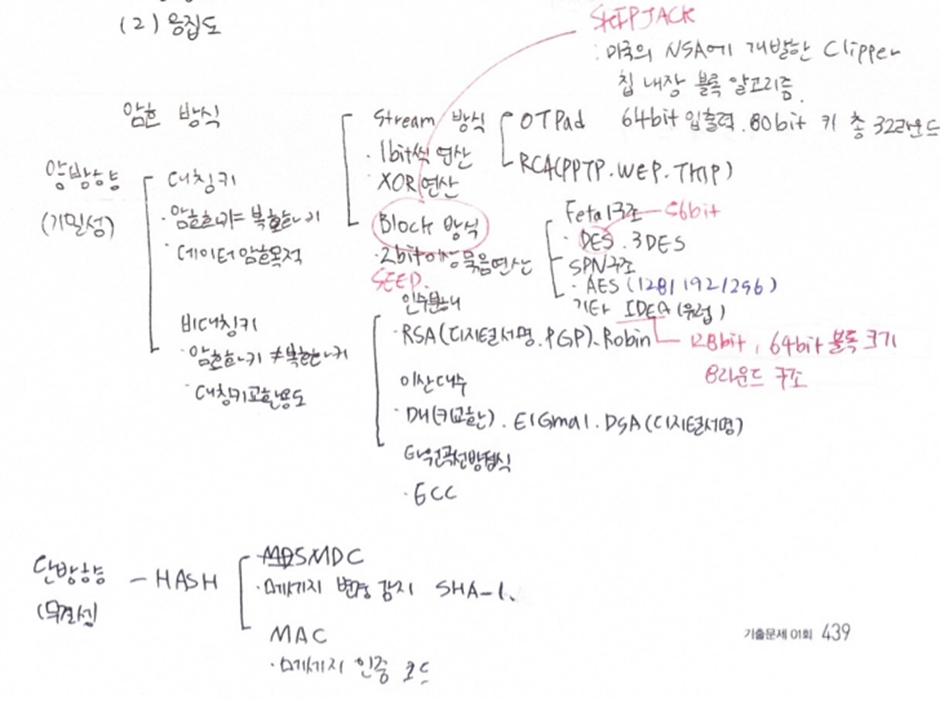 (2) 응집도
SKIPJACK
: 미국의 NSA에 개발한 Clipper
칩 내장 블록 알고리즘.
64bit 입출력. 80bit 키 총 32라운드
암호 방식
양방향
(기밀성)
대칭키
· 암호화키 = 복호화키
· 데이터 암호목적
비대칭키
· 암호화키 ≠ 복호화키
· 대칭키교환용도
Stream 방식
· 1bit씩 연산
XOR연산
OTPad
RC4(PPTP. WEP. TKIP)
Block 방식
· 2bit이상 묶음연산
SEED.
Fetal구조 - 56bit
· DES. 3DES
SPN구조
· AES (128/192/256)
기타 IDEA (유럽)
128bit, 64bit 블록 크기
8라운드 구조
인수분해
· RSA (디지털서명. PGP). Robin
이산대수
· DH(키교환). ElGmal. DSA(디지털서명)
타원곡선방정식
· ECC
단방향
(무결성
- HASH
MDC
· 메세지 변경 감지 SHA-1.
MAC
· 메세지 인증 코드
기출문제 01회 439